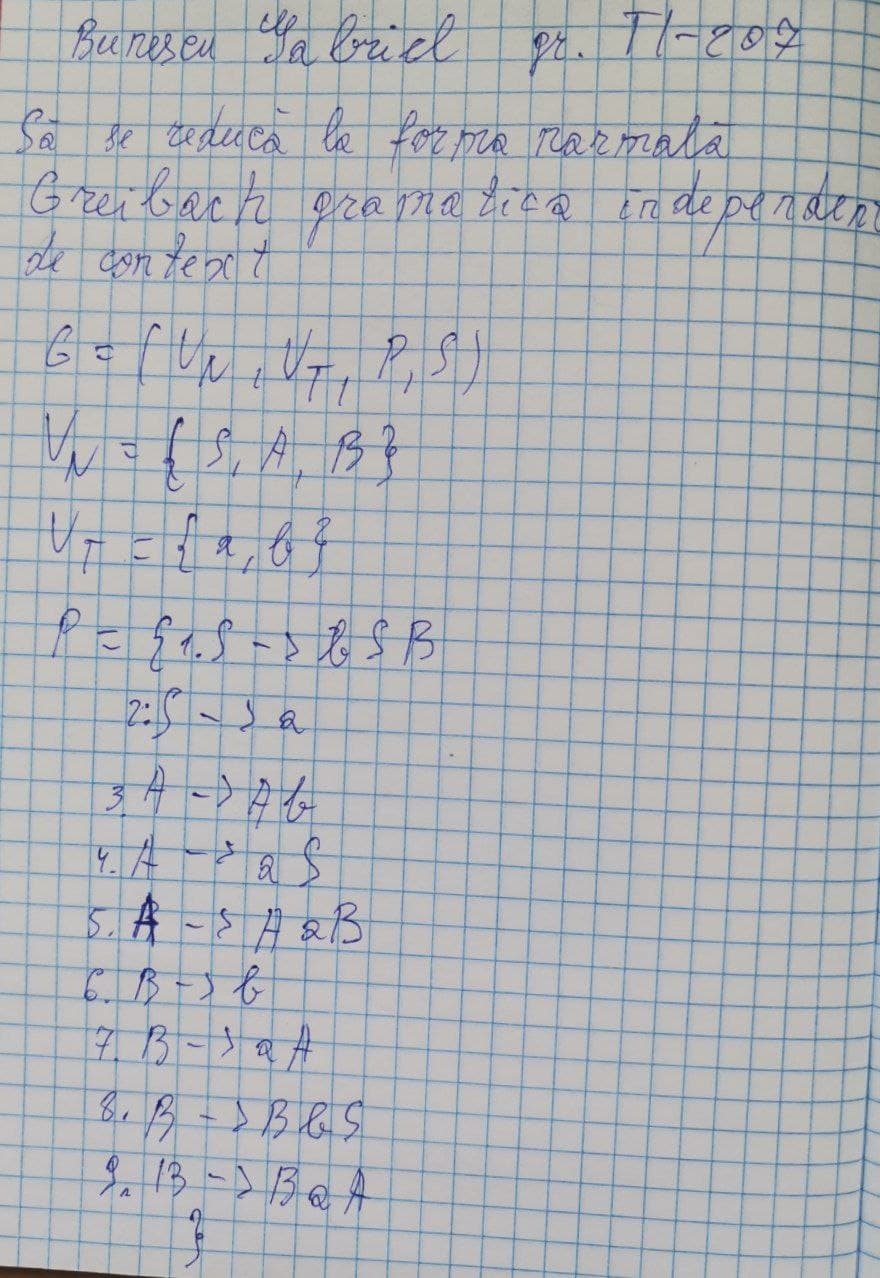 Bunescu Gabriel gr. TI-207
Să se reducă la forma normală
Greibach gramatica independent
de context
G = (VN, VT, P, S)
VN = {S, A, B}
VT = {a, b}
P = {1. S -> bSB
2. S -> a
3. A -> Ab
4. A -> aS
5. A -> AaB
6. B -> b
7. B -> aA
8. B -> BbS
9. B -> BaA
}